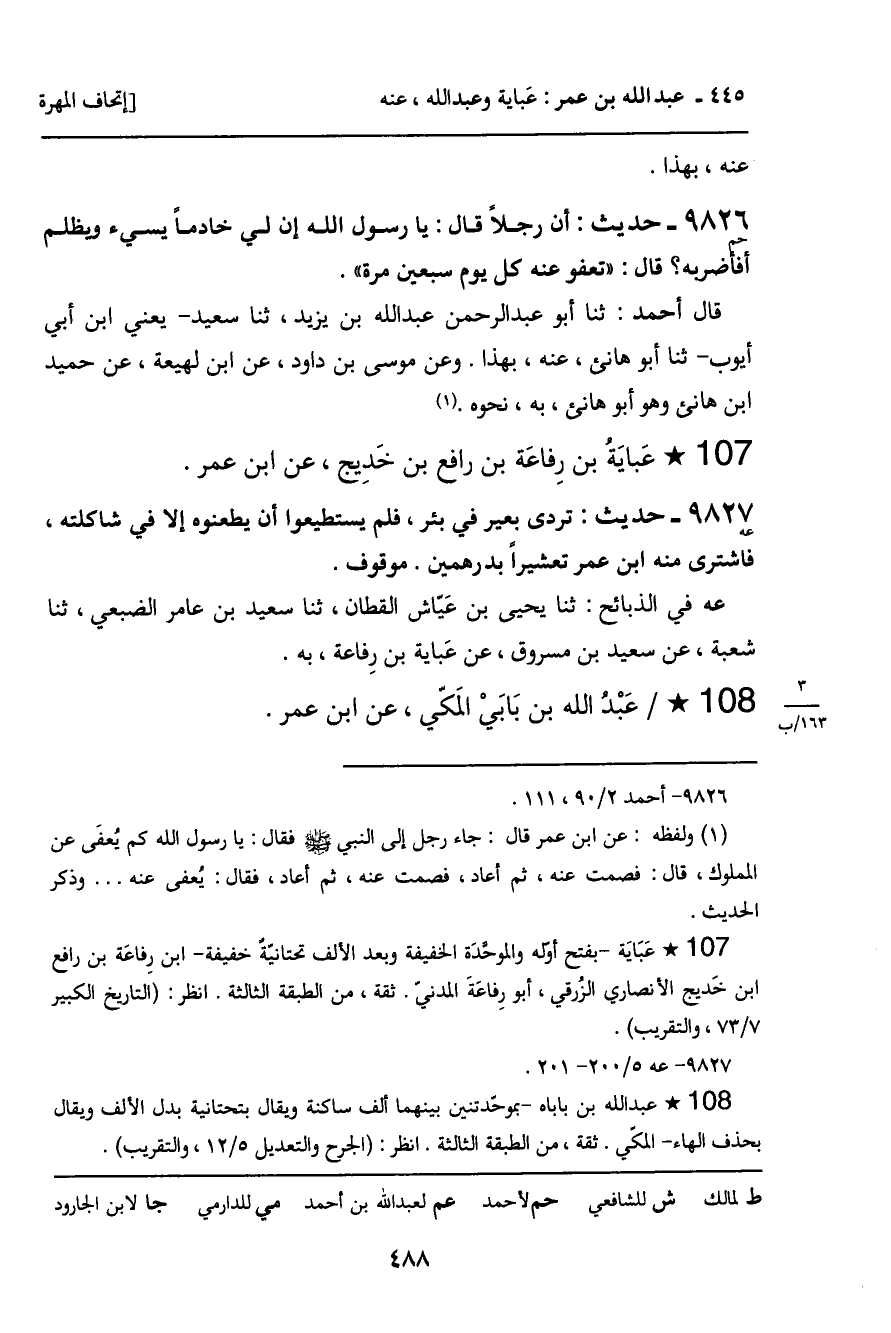 ٤٤٥ ـ عبدالله بن عمر : عَباية وعبدالله ، عنه [إتحاف المهرة
عنه ، بهذا .
٩٨٢٦ ـ حديث : أن رجـلاً قـال : يا رسـول اللـه إن لـي خادمـاً يسـيء ويظلـم
حم
أفأضربه؟ قال : «تعفو عنه كل يوم سبعين مرة» .
قال أحمد : ثنا أبو عبدالرحمن عبدالله بن يزيد ، ثنا سعيد– يعني ابن أبي
أيوب– ثنا أبو هانئ ، عنه ، بهذا . وعن موسى بن داود ، عن ابن لهيعة ، عن حميد
ابن هانئ وهو أبو هانئ ، به ، نحوه .(١)
107 ★ عَبايَةُ بن رِفاعَة بن رافع بن خَدِيج ، عن ابن عمر .
٩٨٢٧ ـ حديث : تردى بعير في بئر ، فلم يستطيعوا أن يطعنوه إلا في شاكلته ،
عه
فاشترى منه ابن عمر تعشيراً بدرهمين . موقوف .
عه في الذبائح : ثنا يحيى بن عَيّاش القطان ، ثنا سعيد بن عامر الضبعي ، ثنا
شعبة ، عن سعيد بن مسروق ، عن عَباية بن رِفاعة ، به .
108 ★ / عَبْدُ الله بن بَابَيْ المَكّي ، عن ابن عمر .
٣
١٦٣/ب
٩٨٢٦– أحمد ٩٠/٢ ، ١١١ .
(١) ولفظه : عن ابن عمر قال : جاء رجل إلى النبي ﷺ فقال : يا رسول الله كم يُعفَى عن
المملوك ، قال : فصمت عنه ، ثم أعاد ، فصمت عنه ، ثم أعاد ، فقال : يُعفى عنه ... وذكر
الحديث .
107 ★ عَبَايَة –بفتح أوّله والموحَّدَة الخفيفة وبعد الألف تحتانيّةٌ خفيفة– ابن رِفاعَة بن رافع
ابن خَديج الأنصاري الزُرقي ، أبو رِفاعَةَ المدنيّ . ثقة ، من الطبقة الثالثة . انظر : (التاريخ الكبير
٧٣/٧ ، والتقريب) .
٩٨٢٧– عه ٢٠٠/٥– ٢٠١ .
108 ★ عبدالله بن باباه –بموحّدتنين بينهما ألف ساكنة ويقال بتحتانية بدل الألف ويقال
بحذف الهاء– المكّي . ثقة ، من الطبقة الثالثة . انظر : (الجرح والتعديل ١٢/٥ ، والتقريب) .
ط لمالك ش للشافعي حم لأحمد عم لعبدالله بن أحمد مي للدارمي جا لابن الجارود
٤٨٨